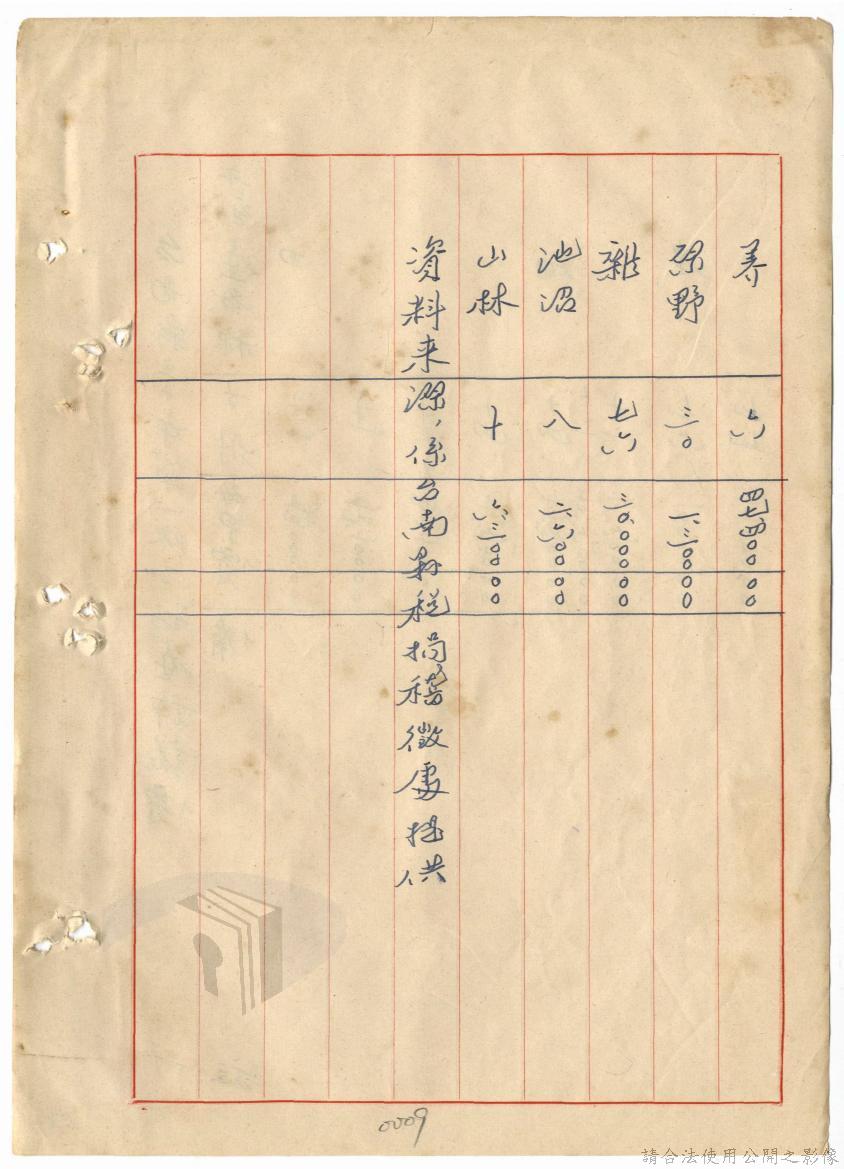 养 六 四七四〇〇〇〇
原野 三〇 一三〇〇〇〇
雜 七六 三〇〇〇〇〇〇
池沼 八 二六〇〇〇〇
山林 十 六三〇〇〇〇
資料来源，係台南縣稅捐稽徵處提供
0009
請合法使用公開之影像